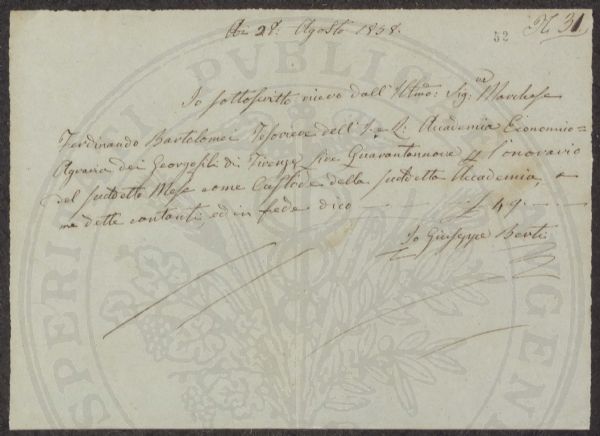 28. Agosto 1858.
52
N. 31
Io sottoscritto ricevo dall' Illmo: Sig.re Marchese
Ferdinando Bartolomei Tesoriere dell' I. e R: Accademia Economico=
Agraria dei Georgofili di Firenze Lire Quarantanove l'onorario
del suddetto Mese come Custode della suddetta Accademia, e
me dette contanti, ed in fede dico 49.
Io Giuseppe Berti
PERI PUBLIC GENTI